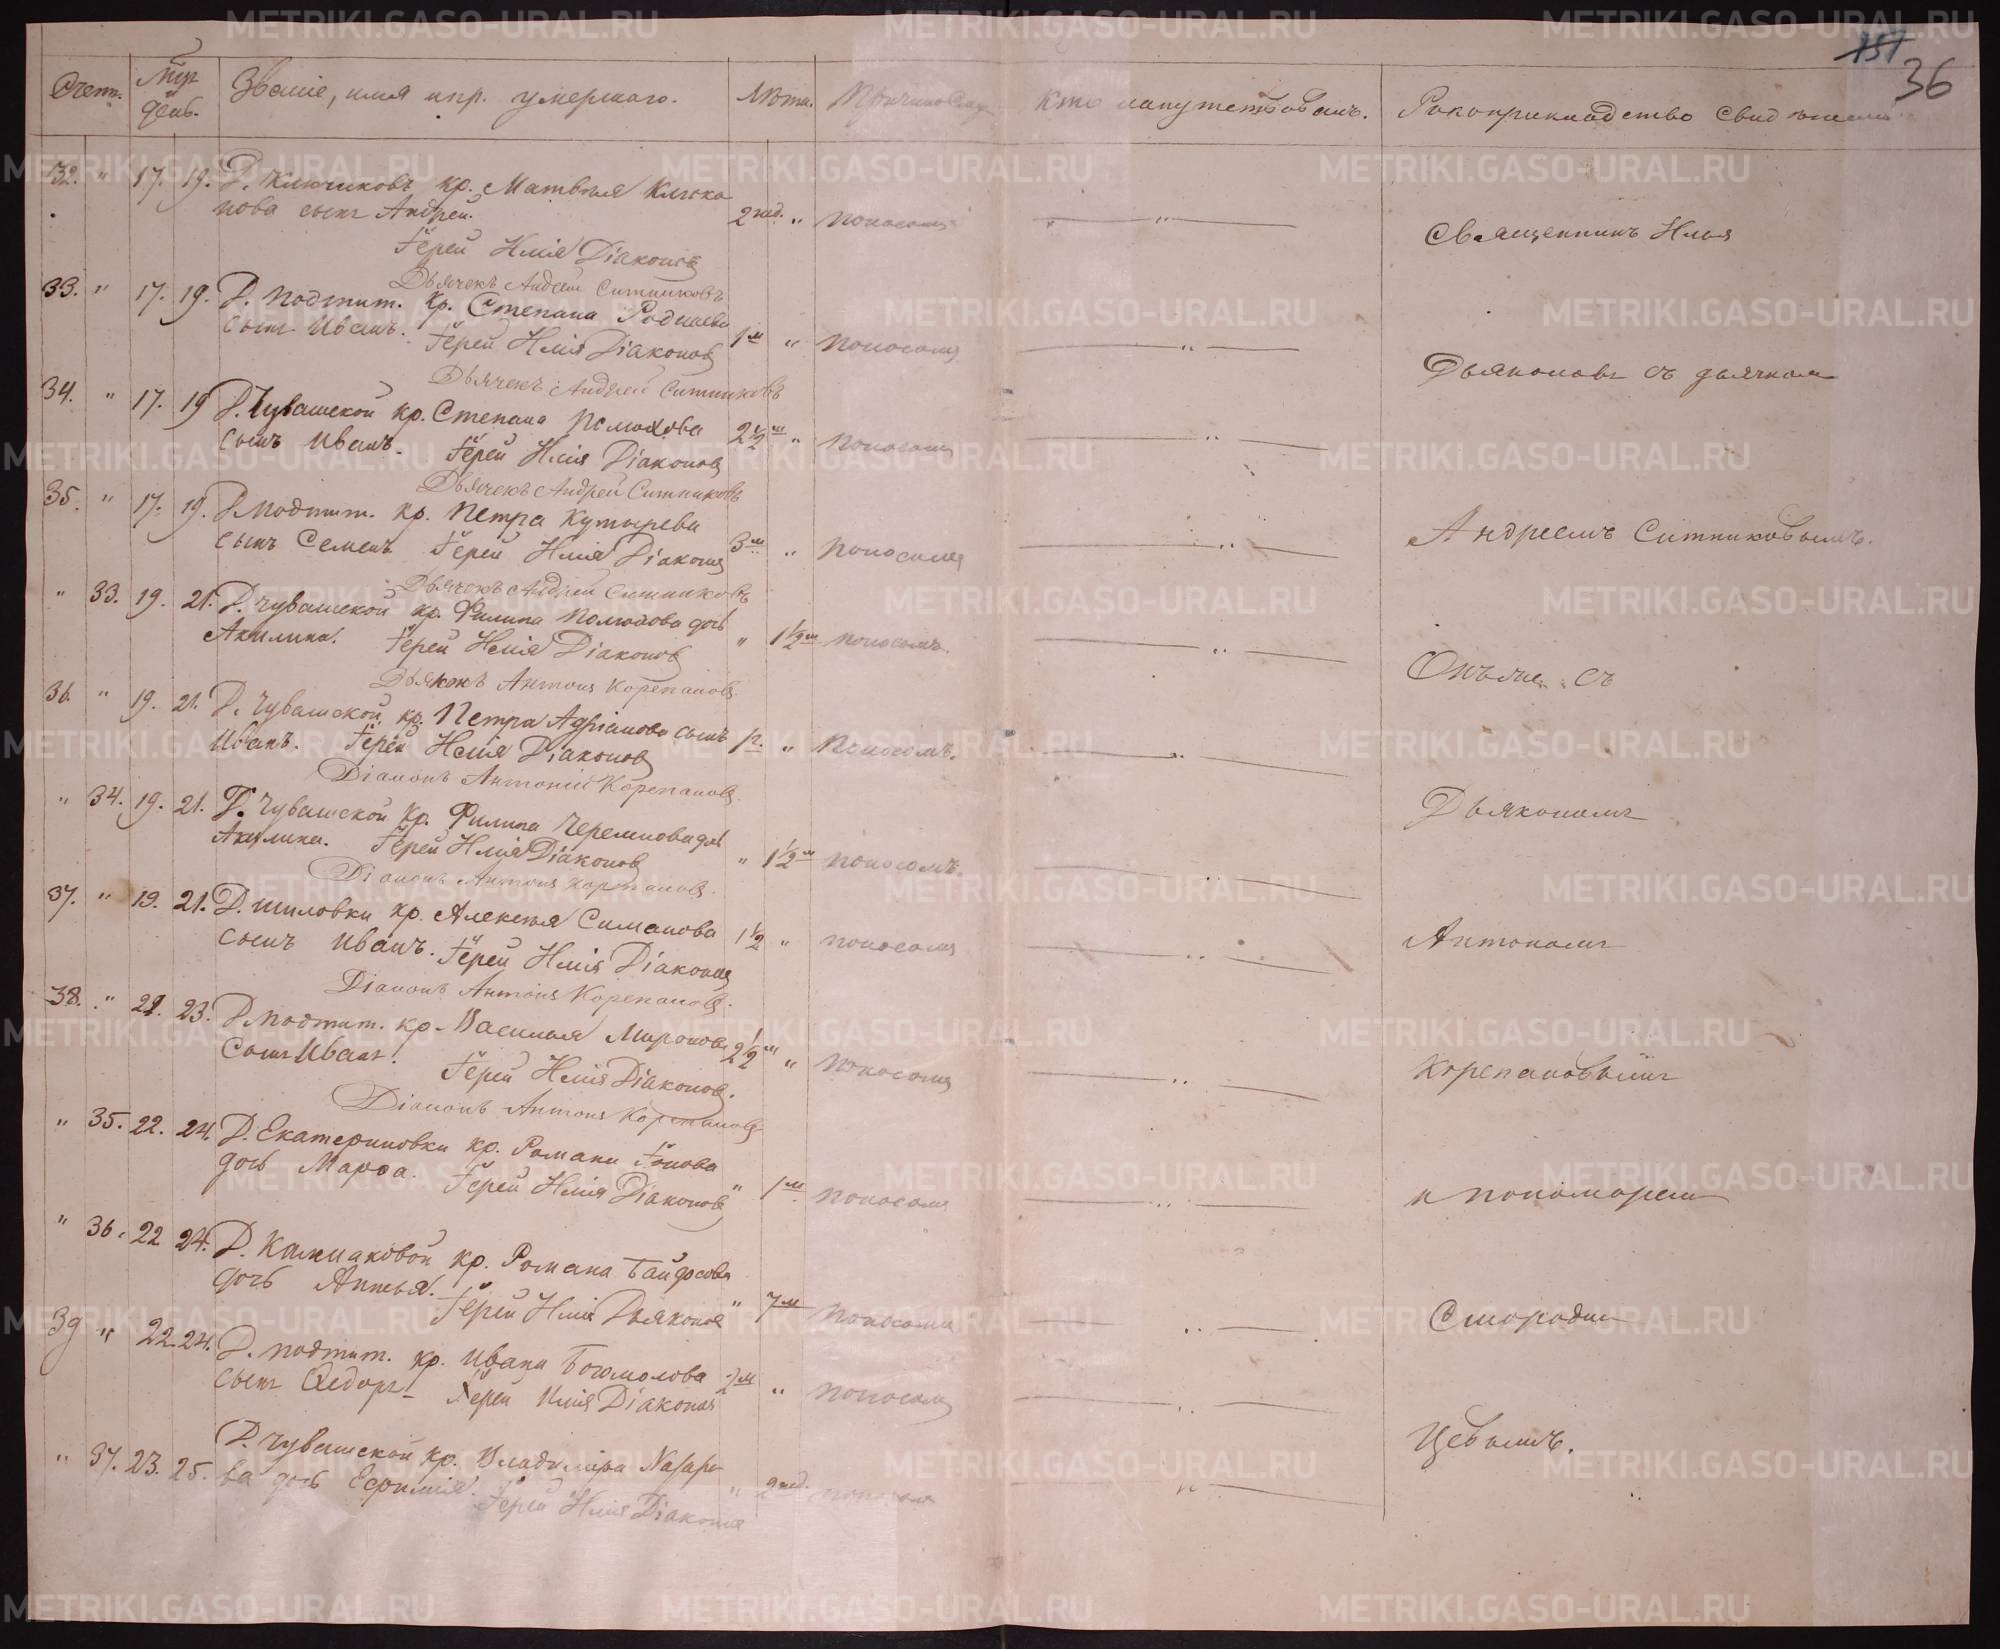 151
36
Счетъ. Мц. и день. Званіе, имя и пр. умершаго. Лѣта. Кто напутствовалъ. Рукоприкладство свид
32. " 17. 19. Д. Ключиковъ кр. Матвѣя
нова сынъ Андрей. 2 нед. " поносомъ — " —
Іерей Илія Діаконовъ
Священникъ Илья
Дьячекъ Андрей Ситниковъ
33. " 17. 19. Д. Подтит. кр. Степана Роднаева
сынъ Иванъ. Іерей Илія Діаконовъ 1 м " поносомъ — " —
Дьячекъ Андрей Ситниковъ
Дьяконовъ съ дьячкомъ
34. " 17. 19 Д. Чувашской кр. Степана Полюхова
сынъ Иванъ. Іерей Илія Діаконовъ 2 1/2 м " поносомъ — " —
Дьячекъ Андрей Ситниковъ
35. " 17. 19. Д. Подтит. кр. Петра Кутырева
сынъ Семенъ Іерей Илія Діаконовъ 3 м " поносомъ — " —
Андреемъ Ситниковымъ.
Дьячекъ Андрей Ситниковъ
" 33. 19. 21. Д. Чувашской кр. Филипа Полюхова дочь
Акилина. Іерей Илія Діаконовъ " 1 1/2 м поносомъ. — " —
съ
Дьяконъ Антоній Корепановъ
36. " 19. 21. Д. Чувашской кр. Петра Адріанова сынъ
Иванъ. Іерей Илія Діаконовъ 1 г. " поносомъ. — " —
Діаконъ Антоній Корепановъ
Дьякономъ
" 34. 19. 21. Д. Чувашской кр. Филипа Черемнова дочь
Акилина. Іерей Илія Діаконовъ " 1 1/2 м поносомъ. — " —
Діаконъ Антоній Корепановъ.
37. " 19. 21. Д. Шиловки кр. Алексѣя Симанова
сынъ Иванъ. Іерей Илія Діаконовъ 1 1/2 " поносомъ — " —
Антономъ
Діаконъ Антоній Корепановъ.
38. " 21. 23. Д. Подтит. кр. Василья Миронова
сынъ Иванъ. Іерей Илія Діаконовъ. 2 1/2 м " поносомъ — " —
Корепановымъ
Діаконъ Антоній Корепановъ
" 35. 22. 24. Д. Екатериновки кр. Романа Іонова
дочь Марѳа. Іерей Илія Діаконовъ " 1 м поносомъ — " —
и пономаремъ
" 36. 22 24. Д. Калмаковой кр. Романа Байдосова
дочь Іерей Илія Дьяконовъ " 7 м поносомъ — " —
Смородин
39 " 22. 24. Д. Подтит. кр. Ивана Богомолова
сынъ Ѳедоръ Іерей Илія Діаконовъ 2 м " поносомъ — " —
цевымъ.
Д. Чувашской кр. Владиміра Назаро
" 37. 23. 25. ва дочь Евфимія. Іерей Илія Діаконовъ " 2 нед. поносомъ — " —
METRIKI.GASO-URAL.RU